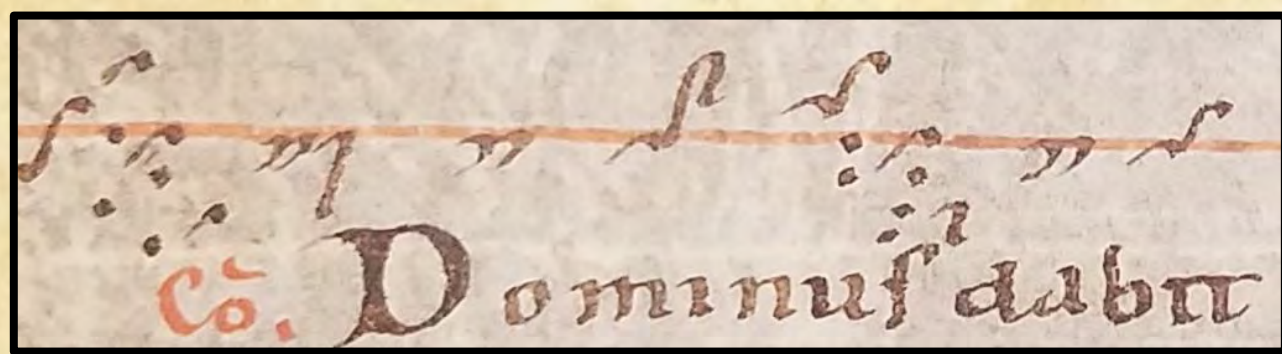 Cō. Dominuſ dabit